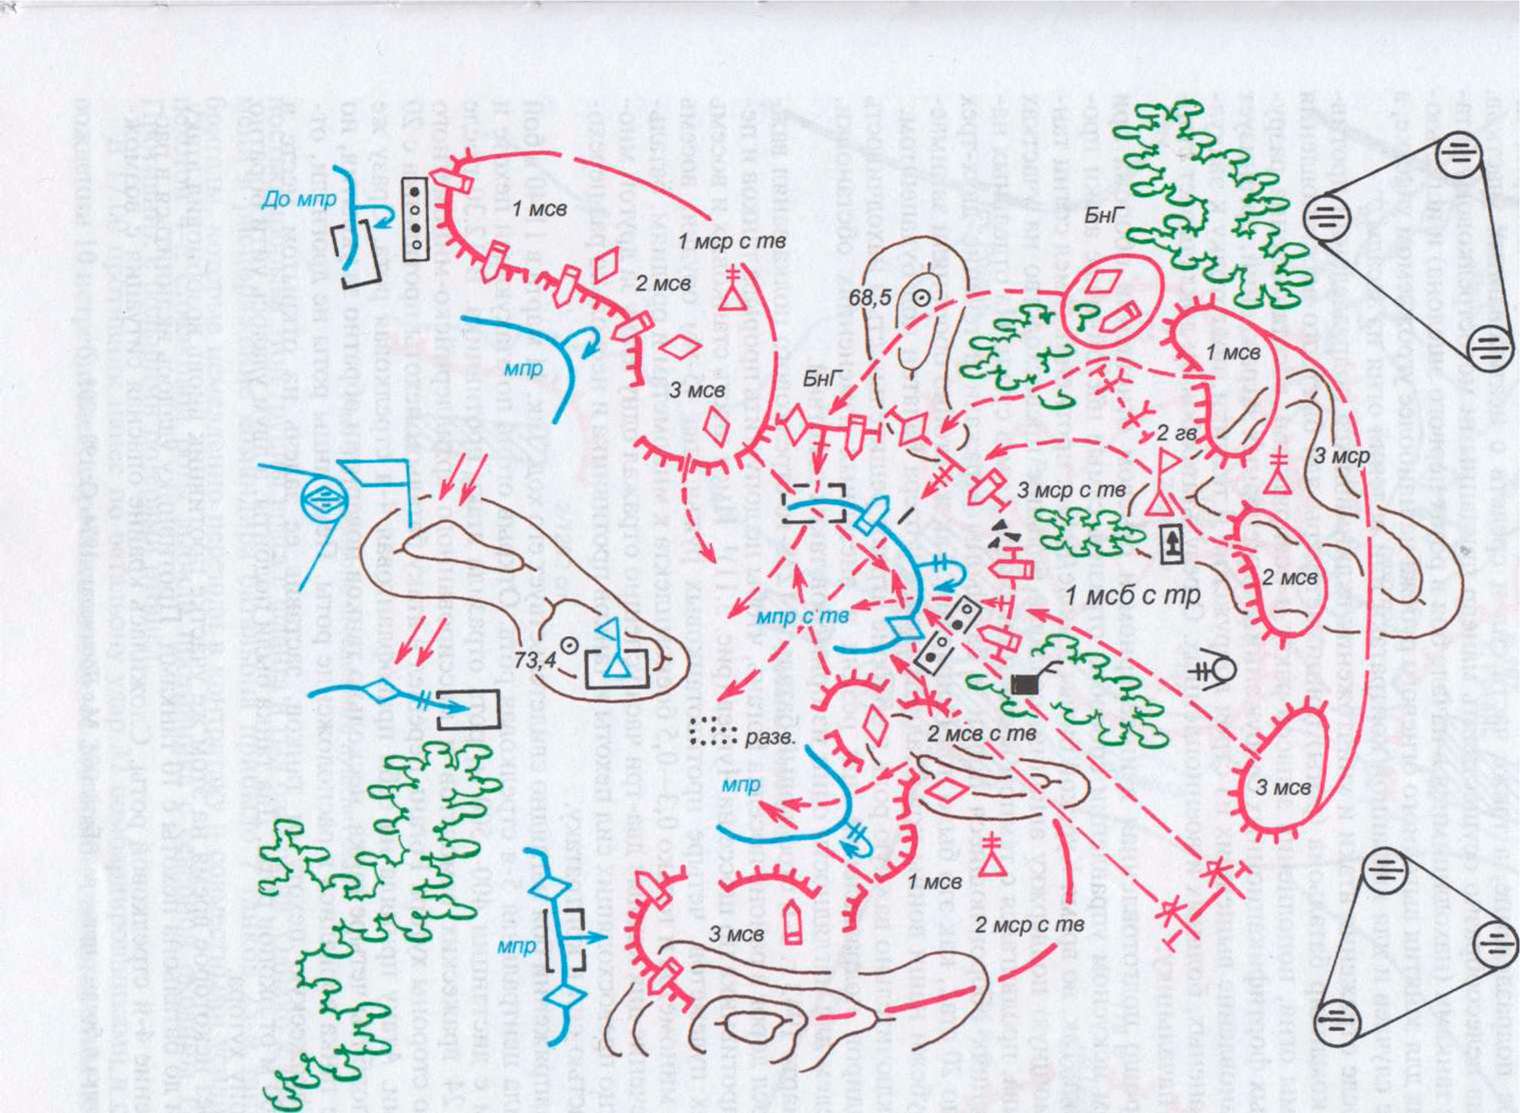 До мпр
1 мсв
БнГ
1 мср с тв
2 мсв
68,5
мпр
3 мсв
БнГ
1 мсв
2 гв
3 мср
3 мср с тв
2 мсв
1 мсб с тр
мпр с тв
73,4
разв.
2 мсв с тв
мпр
3 мсв
1 мсв
2 мср с тв
3 мсв
мпр